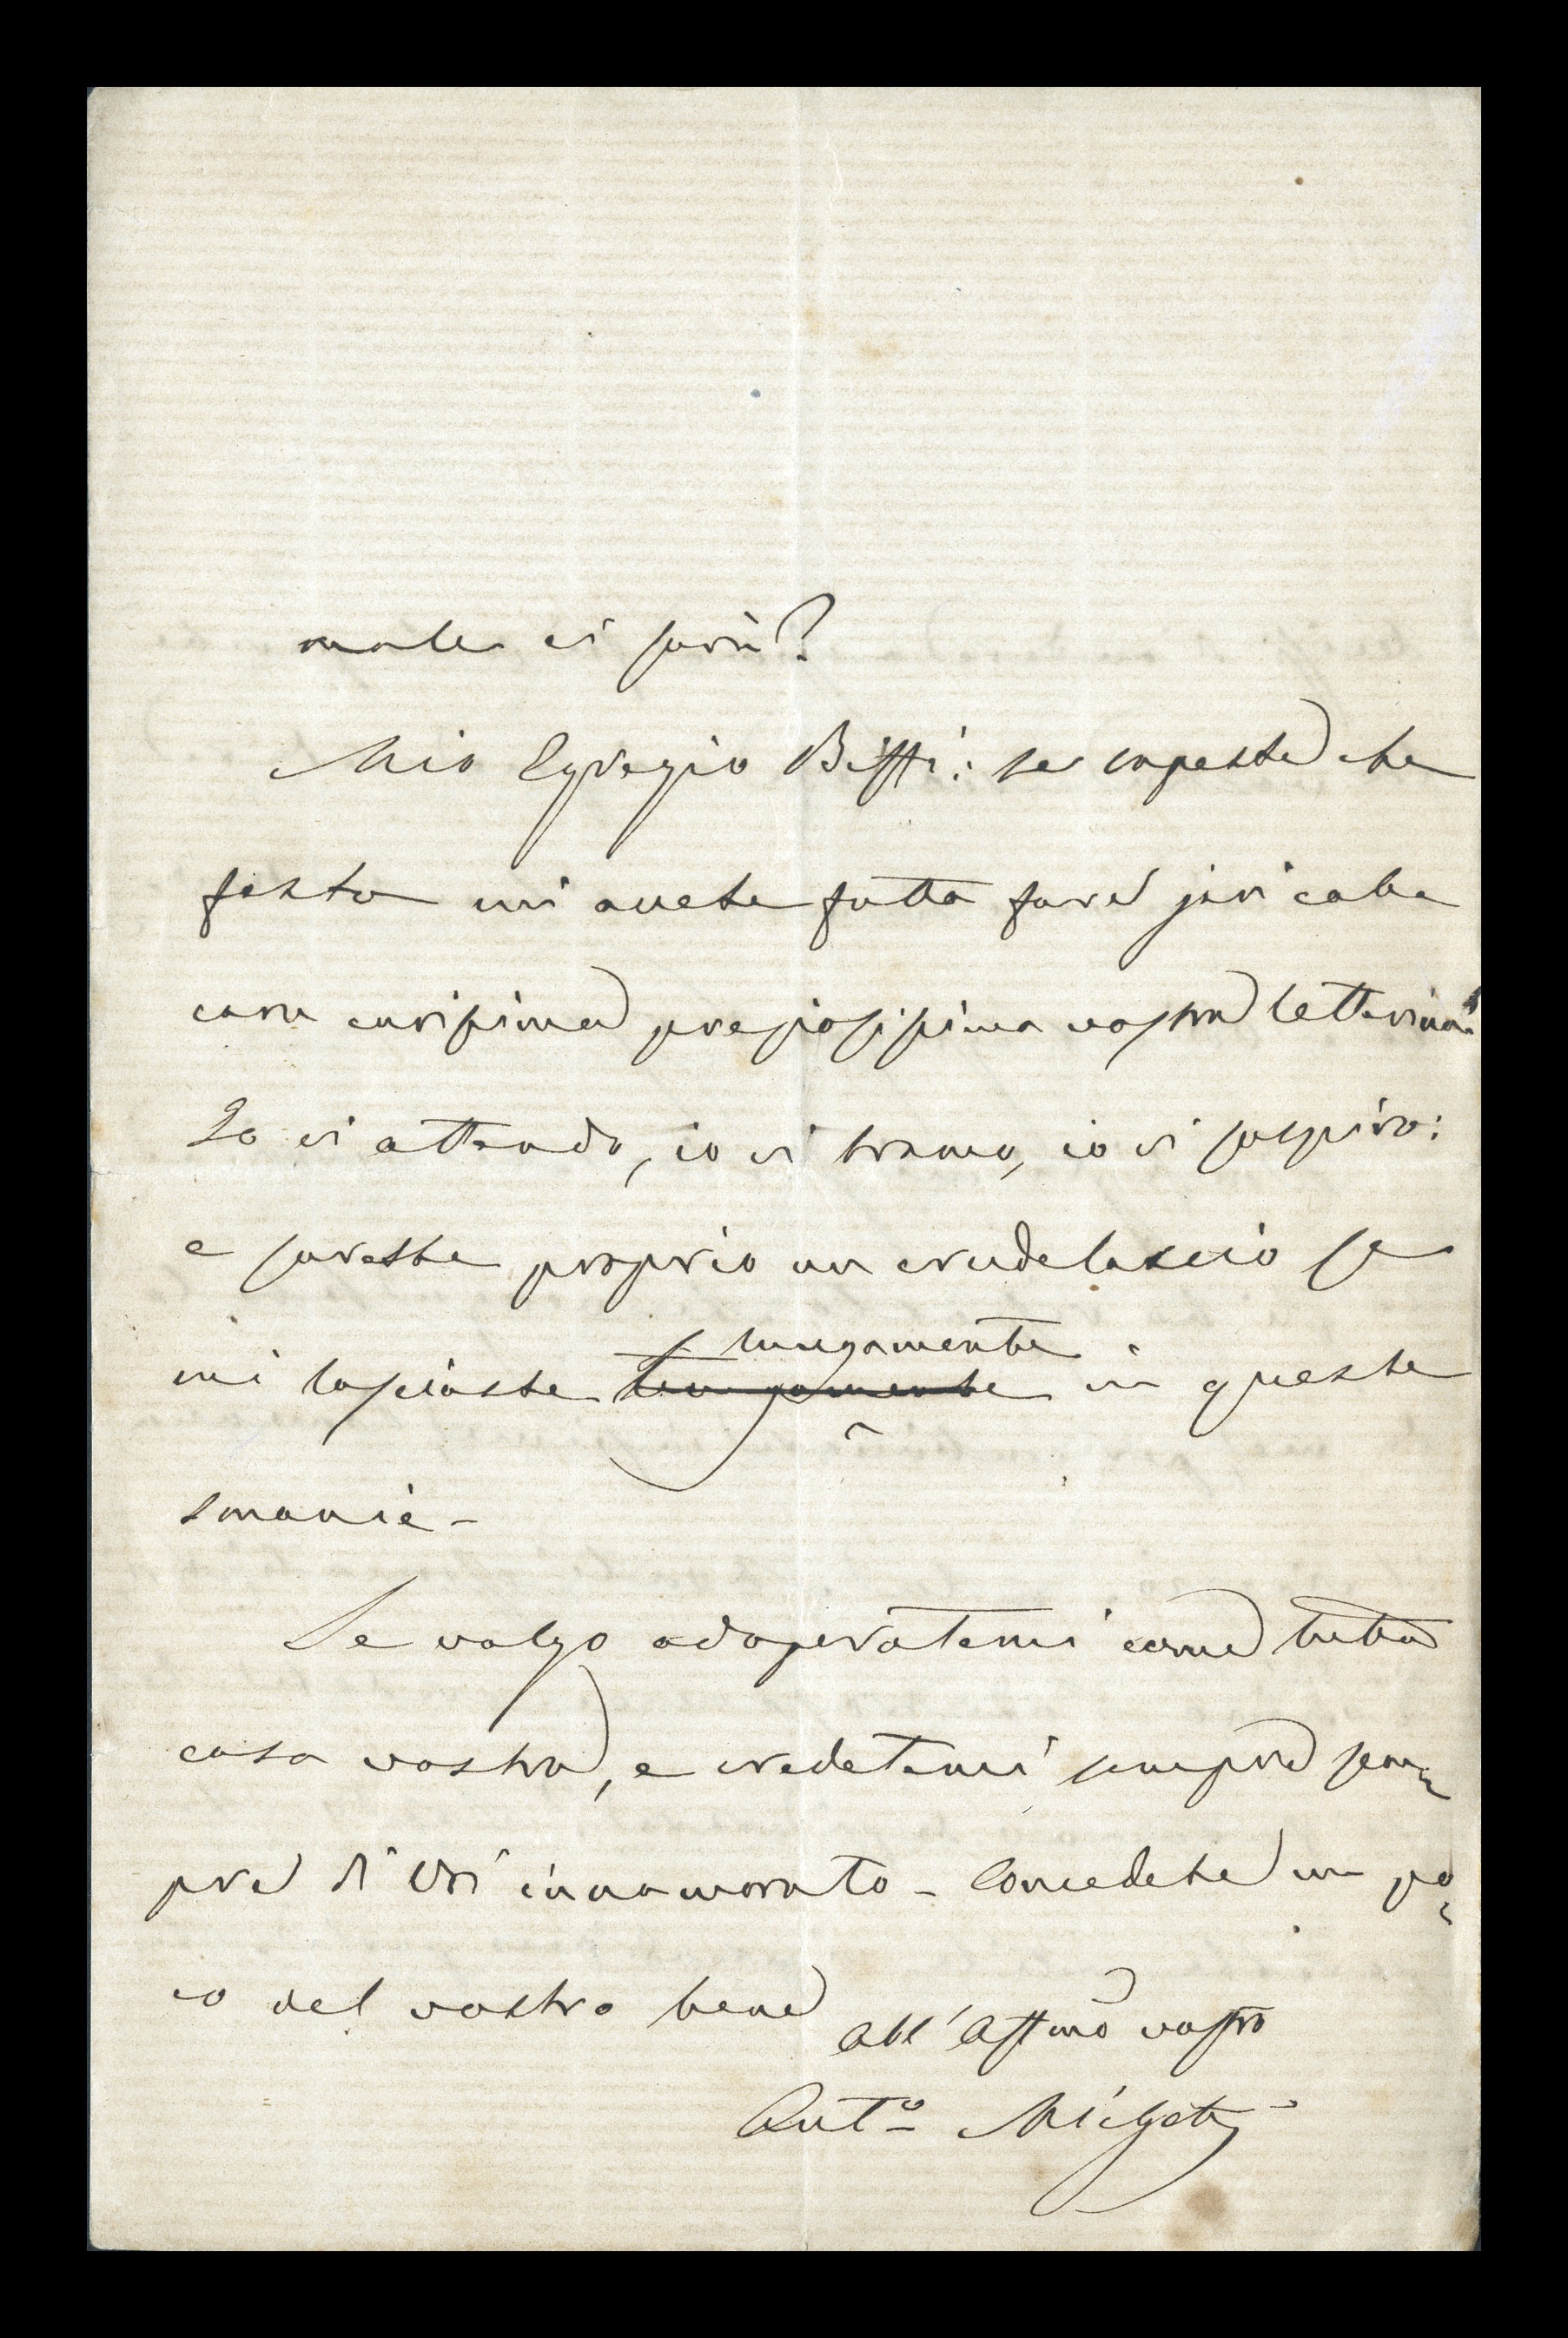 male ci sarà?
Mio Egregio Biffi: se sapeste che
festa mi avete fatto fare jeri colla
cara carissima preziosissima vostra letterina!
Io vi attendo, io vi bramo, io vi sospiro:
e sareste proprio un crudelaccio se
mi lasciaste lungamente in queste
smanie -
Se valgo adoperatemi come tutta
cosa vostra, e credetemi sempre sem=
pre di Voi innamorato - Concedete un po=
co del vostro bene
All' Affmo vostro
Anto